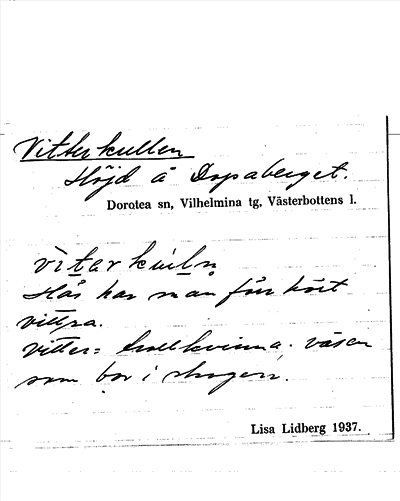 Vitterkullen
Höjd å Dopaberget.
Dorotea sn, Vilhelmina tg, Västerbottens l.
Här har man förr hört
vittra.
Vitter = trollkvinna. väsen
som bor i skogen.
Lisa Lidberg 1937.